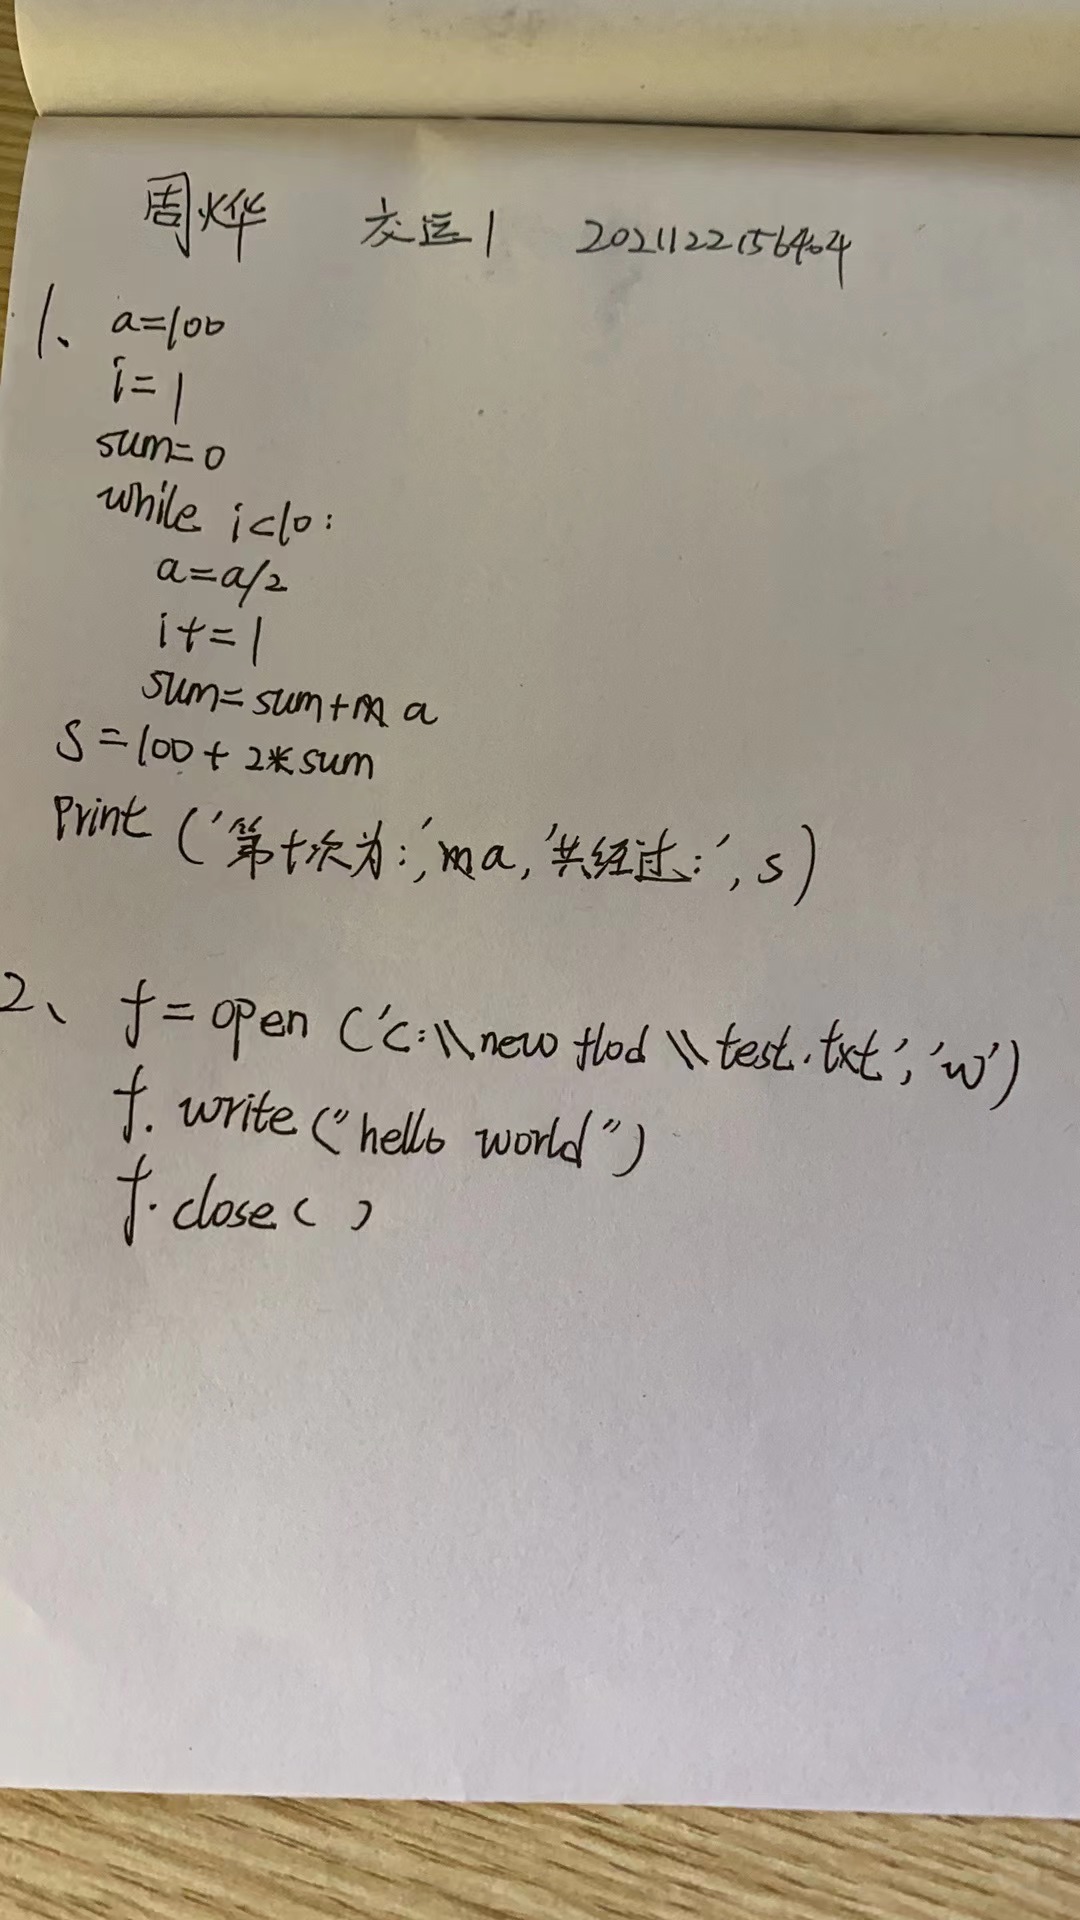 周烨 交运1 2021122156404
1、a=100
i=1
sum=0
while i<10:
a=a/2
i+=1
sum=sum+a
S=100+2*sum
Print('第十次为:',a,'共经过:',s)
2、f=open('c:\\new flod\\test.txt','w')
f.write("hello world")
f.close()